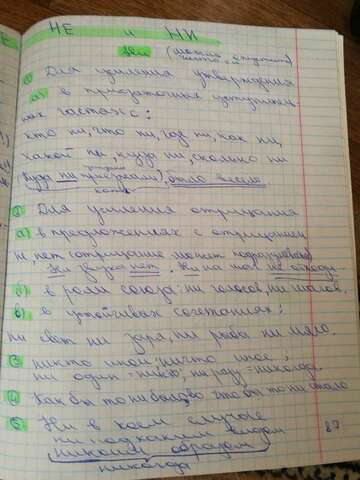 НЕ и НИ
Ни (можно опустить)
① Для усиления утверждения
а) в придаточных уступитель
ных частях с:
кто ни, что ни, где ни, как ни,
какой ни, куда ни, сколько ни
② Для усиления отрицания
а) в предложениях с отрицанием
не, нет (отрицание может подразумеваться)
Ни звука нет. Ни на шаг не отходи.
б) в роли союза: ни голосов, ни шагов.
в) в устойчивых сочетаниях:
ни свет ни заря, ни рыба ни мясо.
③ никто иной; ничто иное;
ни один = никто; ни разу = никогда.
④ Как бы то ни было, что бы то ни стало
⑤ Ни в коем случае
ни под каким видом
никоим образом
никогда
87